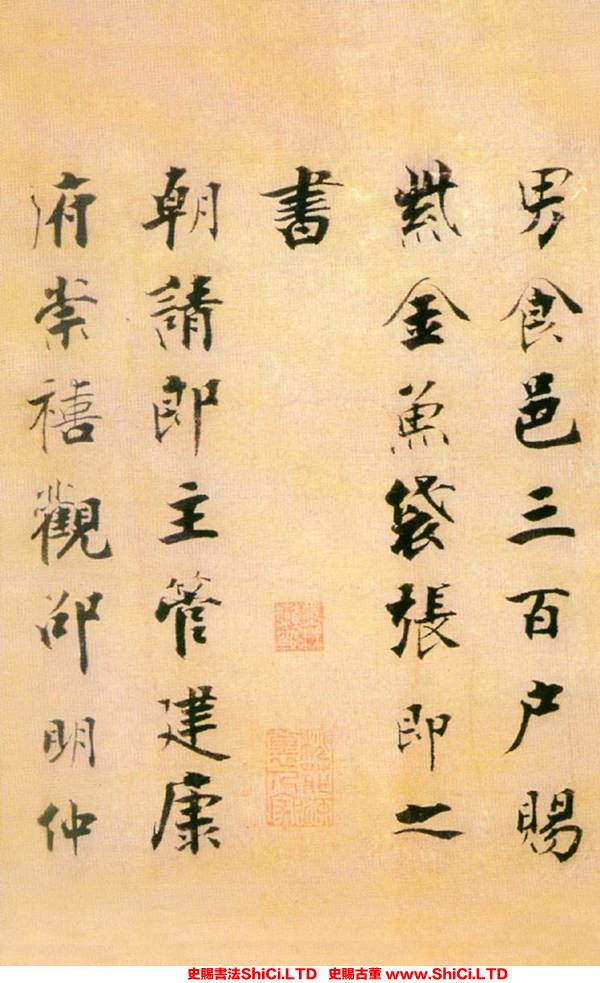 男食邑三百户賜
紫金魚袋張即之
書
朝請郎主管建康
府崇禧觀邵明仲
史賜書法ShiCi.LTD 史賜古董 www.ShiCi.LTD